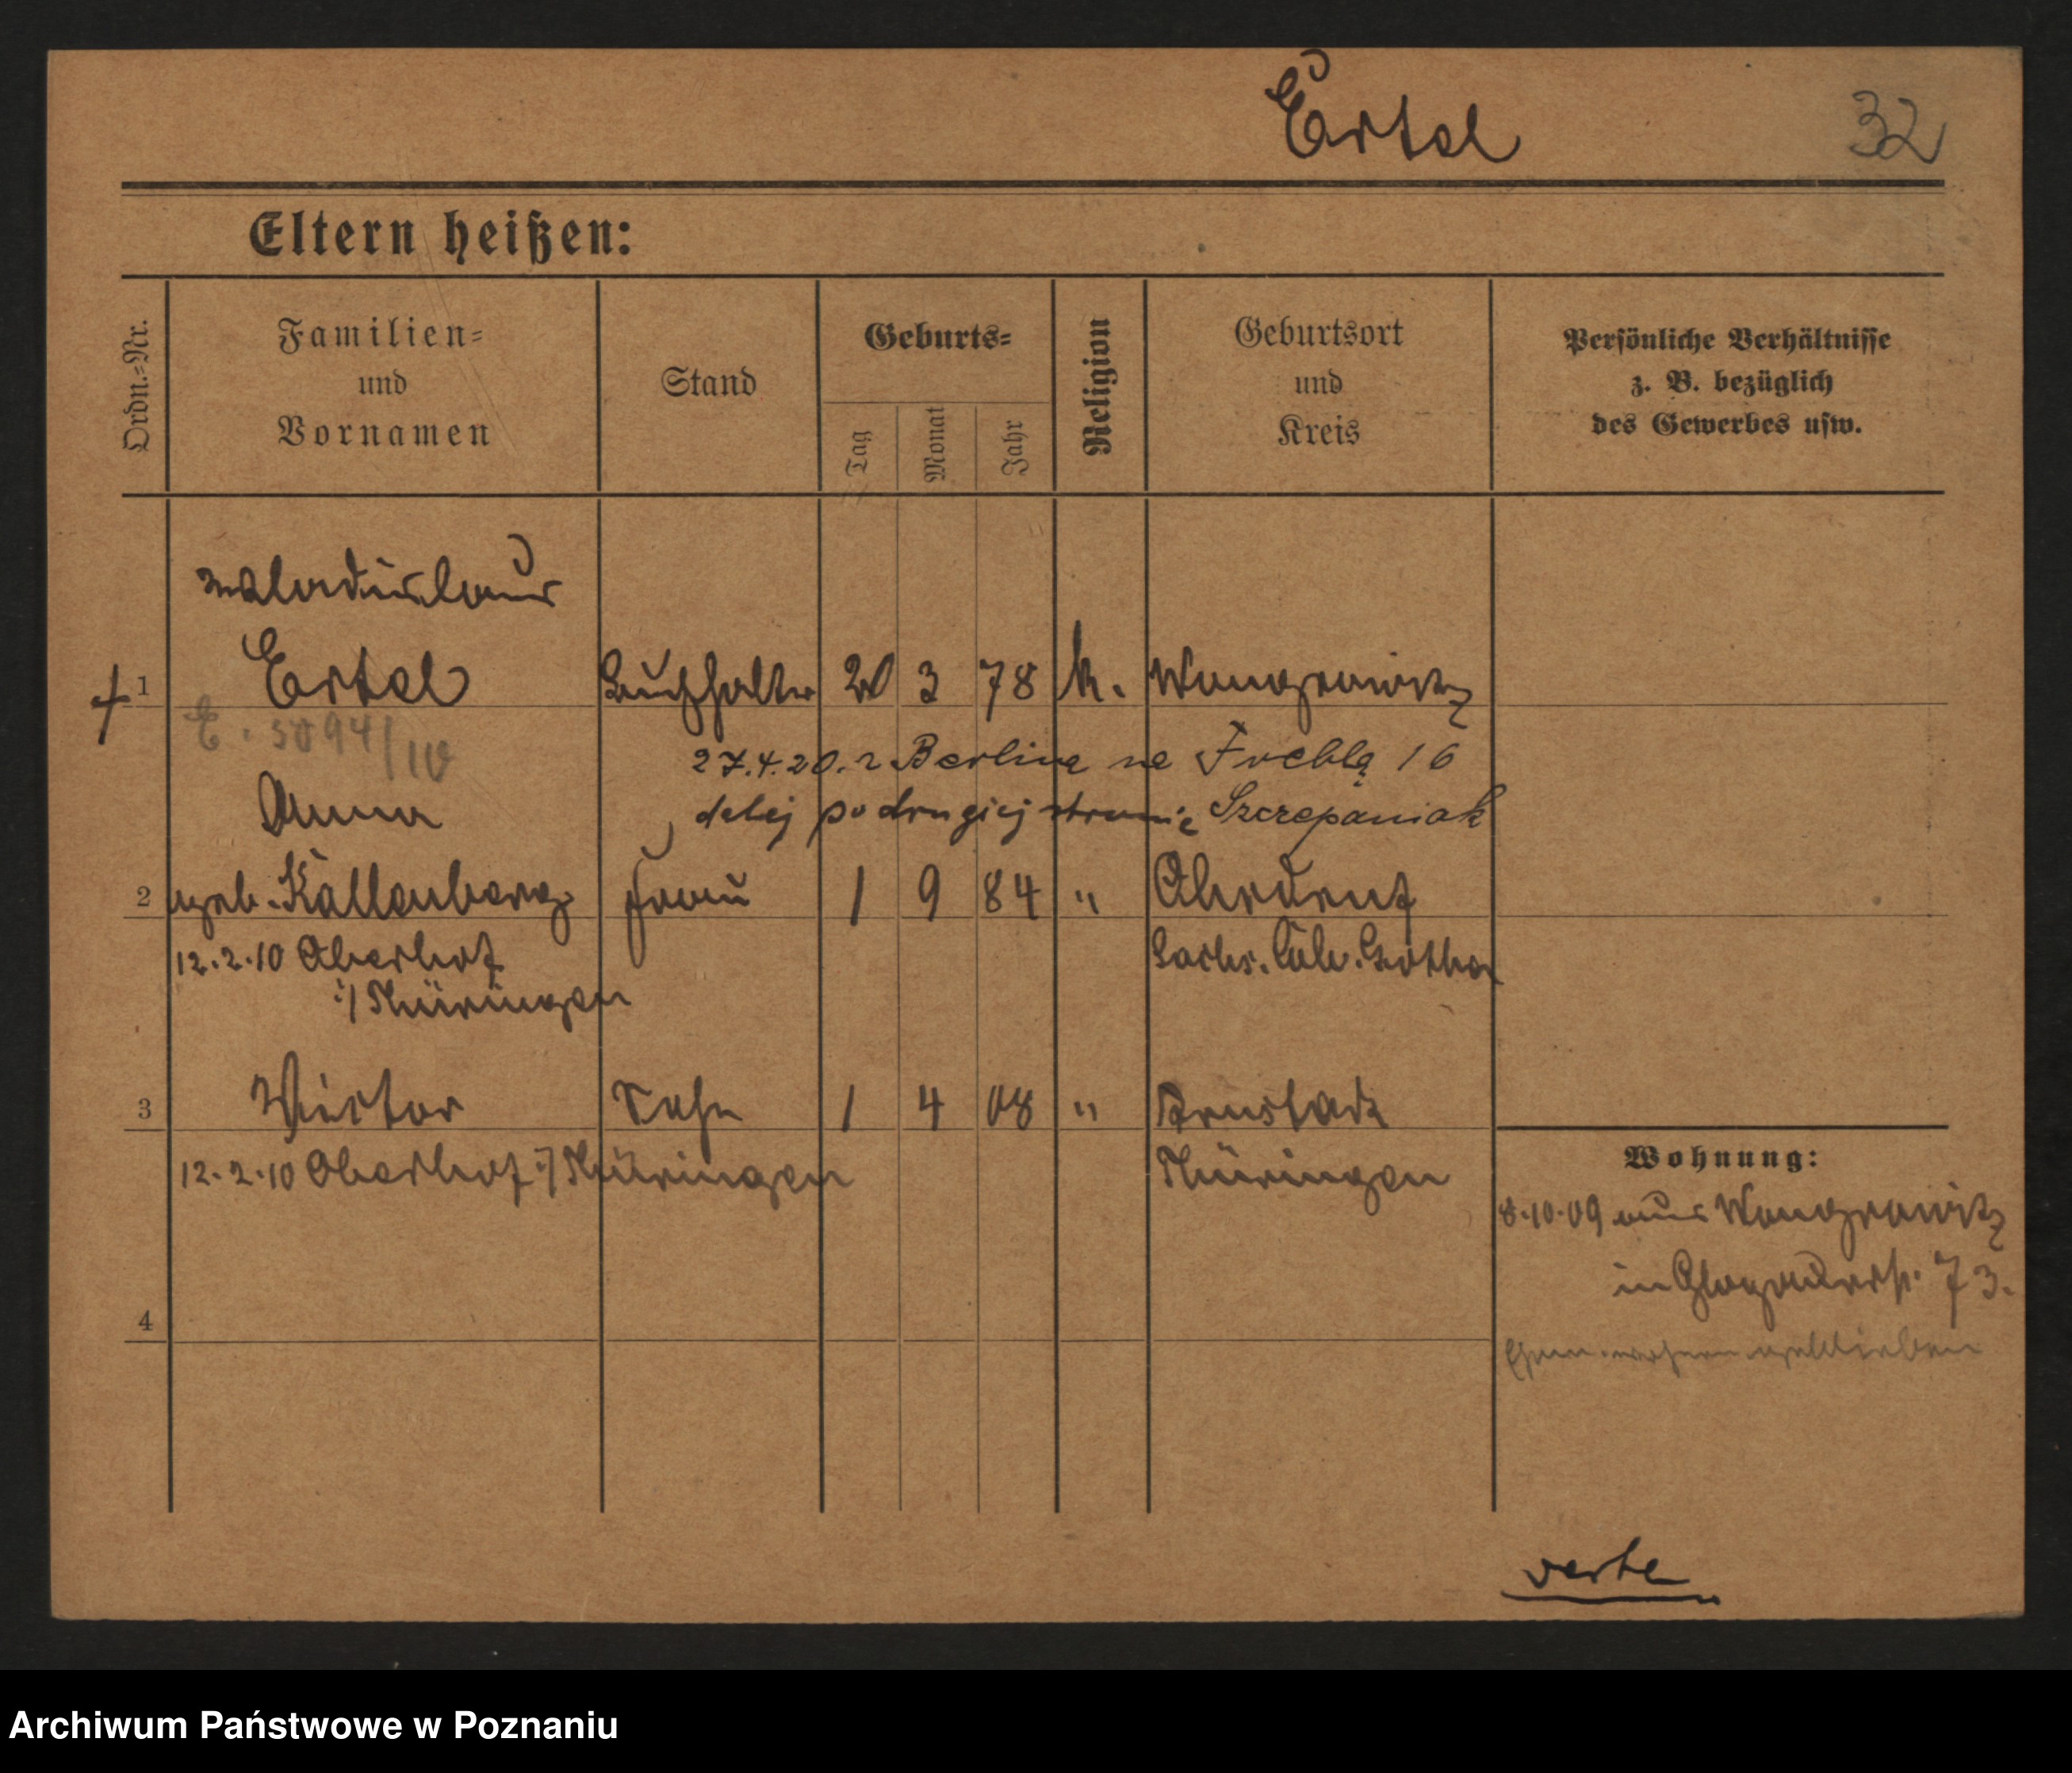 Ertel 32
Eltern heißen:
Ordn.=Nr.
Familien=
und
Vornamen
Stand
Geburts=
Tag
Monat
Jahr
Religion
Geburtsort
und
Kreis
Persönliche Verhältnisse
z. B. bezüglich
des Gewerbes usw.
Wladislaus
1 Ertel Buchhalter 20 3 78 k. Wongrowitz
27.4.20. z Berlina na Freblą 16
Anna
dalej po drugiej stronie Szczepaniak
2 geb. Kallenberg Frau 1 9 84 " Ohrdruf
12.2.10 Oberhof Sachs. Cob. Gotha
i/Thüringen
3 Victor Sohn 1 4 08 " Arnstadt
12.2.10 Oberhof i/Thüringen Thüringen
Wohnung:
8.10.09 aus Wongrowitz
in Glogauerstr. 73.
4
verte
Archiwum Państwowe w Poznaniu